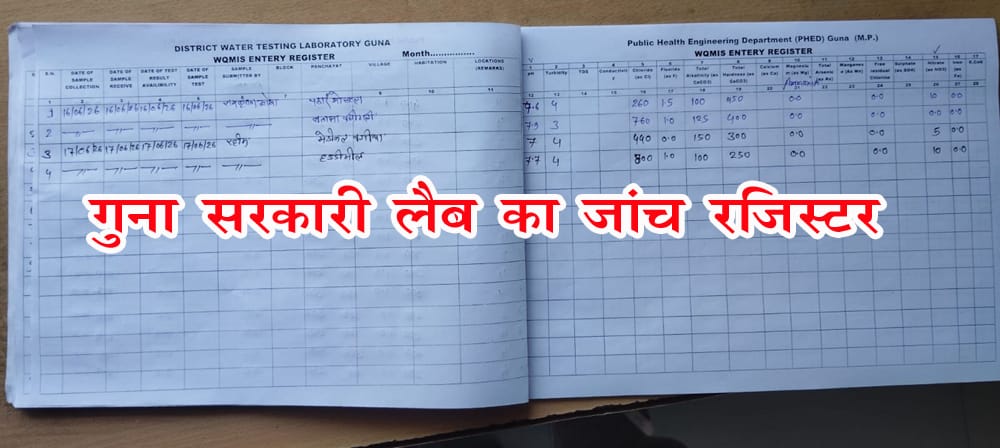 DISTRICT WATER TESTING LABORATORY GUNA
WQMIS ENTERY REGISTER Month...............
S.N. DATE OF SAMPLE COLLECTION DATE OF SAMPLE RECEIVE DATE OF TEST RESULT AVAILIBILITY DATE OF SAMPLE TEST SAMPLE SUBMITTER BY BLOCK PANCHAYAT VILLAGE HABITATION LOCATIONS (REMARKS)
1 16/06/26 16/06/26 16/06/26 16/06/26
2 —〃— —〃— —〃— —〃— —〃—
3 17/06/26 17/06/26 17/06/26 17/06/26
4 —〃— —〃— —〃— —〃— —〃—
Public Health Engineering Department (PHED) Guna (M.P.)
WQMIS ENTERY REGISTER
pH Turbicity TDS Conductivit Chloride (as Cl) Fluoride (as F) Total Alkalinity (as CaCO3) Total Hardness (as CaCO3) Calcium (as Ca) Magnesium (as Mg) Total Arsenic (as As) Manganes e (As Mn) Free residual Chlorine Sulphate (as SO4) Nitrate (as NO3) Iron (as Fe) E.Coli
7.6 4 260 1.5 100 450 0.0 0.0 10 0.0
7.9 3 760 1.0 125 400 0.0 0.0 0.0
7 4 440 0.0 150 300 0.0 0.0 5 0.0
7.7 4 800 1.0 100 250 0.0 0.0 10 0.0
गुना सरकारी लैब का जांच रजिस्टर